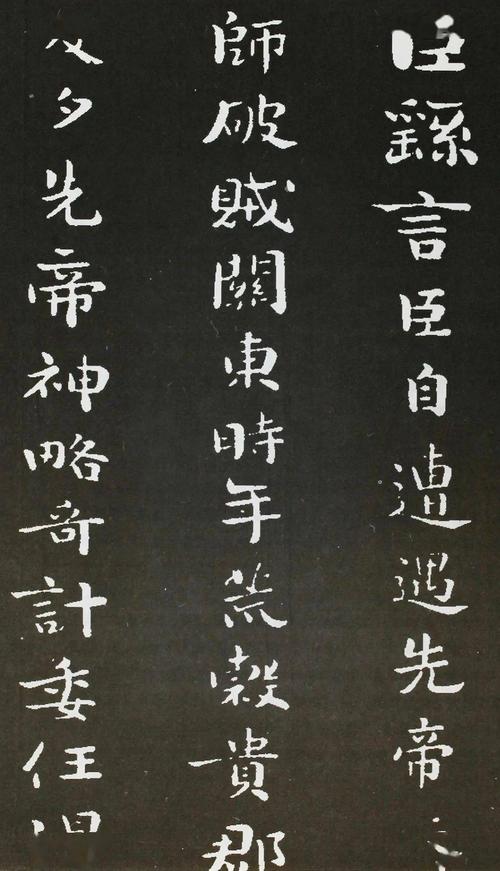 臣繇言臣自遭遇先帝
師破賊關東時年荒穀貴郡
及夕先帝神略奇計委任